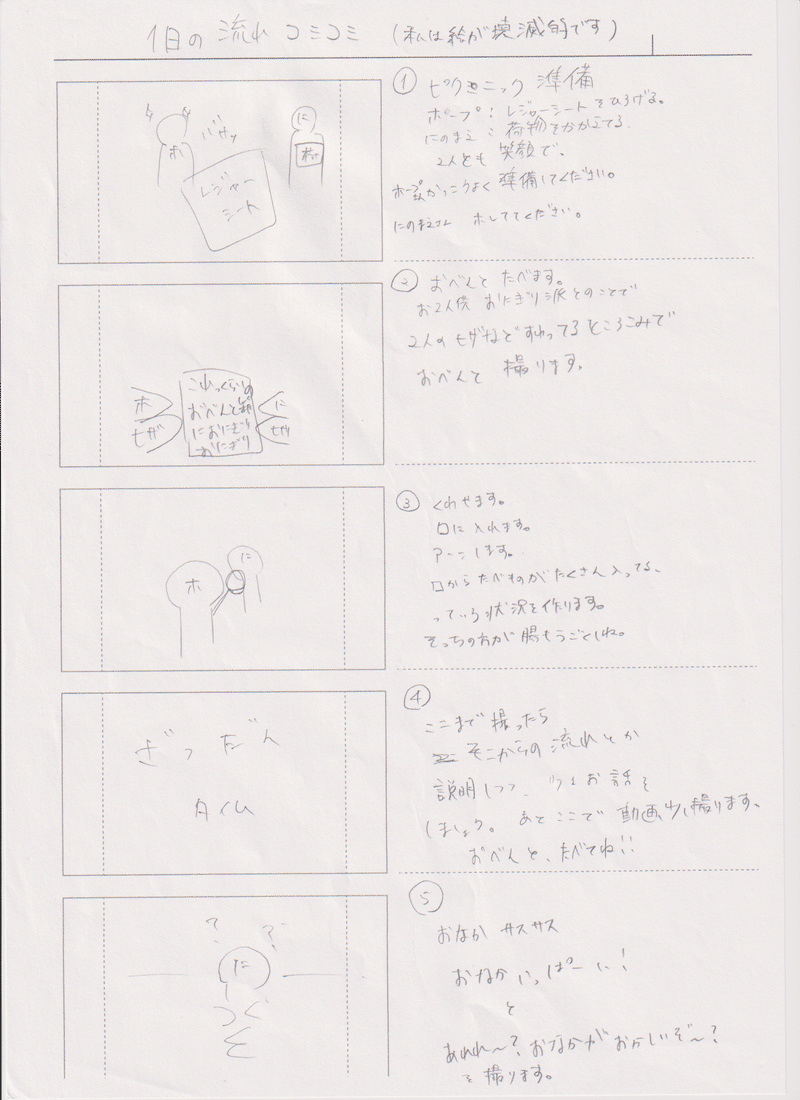 1日の流れ コミコミ (私は絵が壊滅的です)
ホ
バサッ
に
レジャー
シート
① ピクニック 準備
ホープ:レジャーシートをひろげる。
にのまえ:荷物をかかえてる
2人とも 笑顔で、
ホープさん かっこうよく 準備してください。
にのまえさん ホしててください。
② おべんと たべます。
お2人供 おにぎり派とのことで
2人のヒザなどすわってるところこみで
おべんと 撮ります。
ホ
ヒザ
これっくらいの
おべんと箱
におにぎり
おにぎり
に
ヒザ
③ くわせます。
口に入れます。
アーンします。
口からたべものがたくさん入ってる、
っていう状況を作ります。
そっちの方が腸もうごくしね。
ホ
に
ざつだん
タイム
④
ここまで撮ったら
そこからの流れとか
説明しつつ、 お話を
しましょう。 あと ここで 動画も撮ります、
おべんと、たべてね!!
? ?
に
つぐ
そ
⑤
おなか サスサス
おなかいっぱーい!
と
あれれ〜?おなかがおかしいぞ〜?
を撮ります。